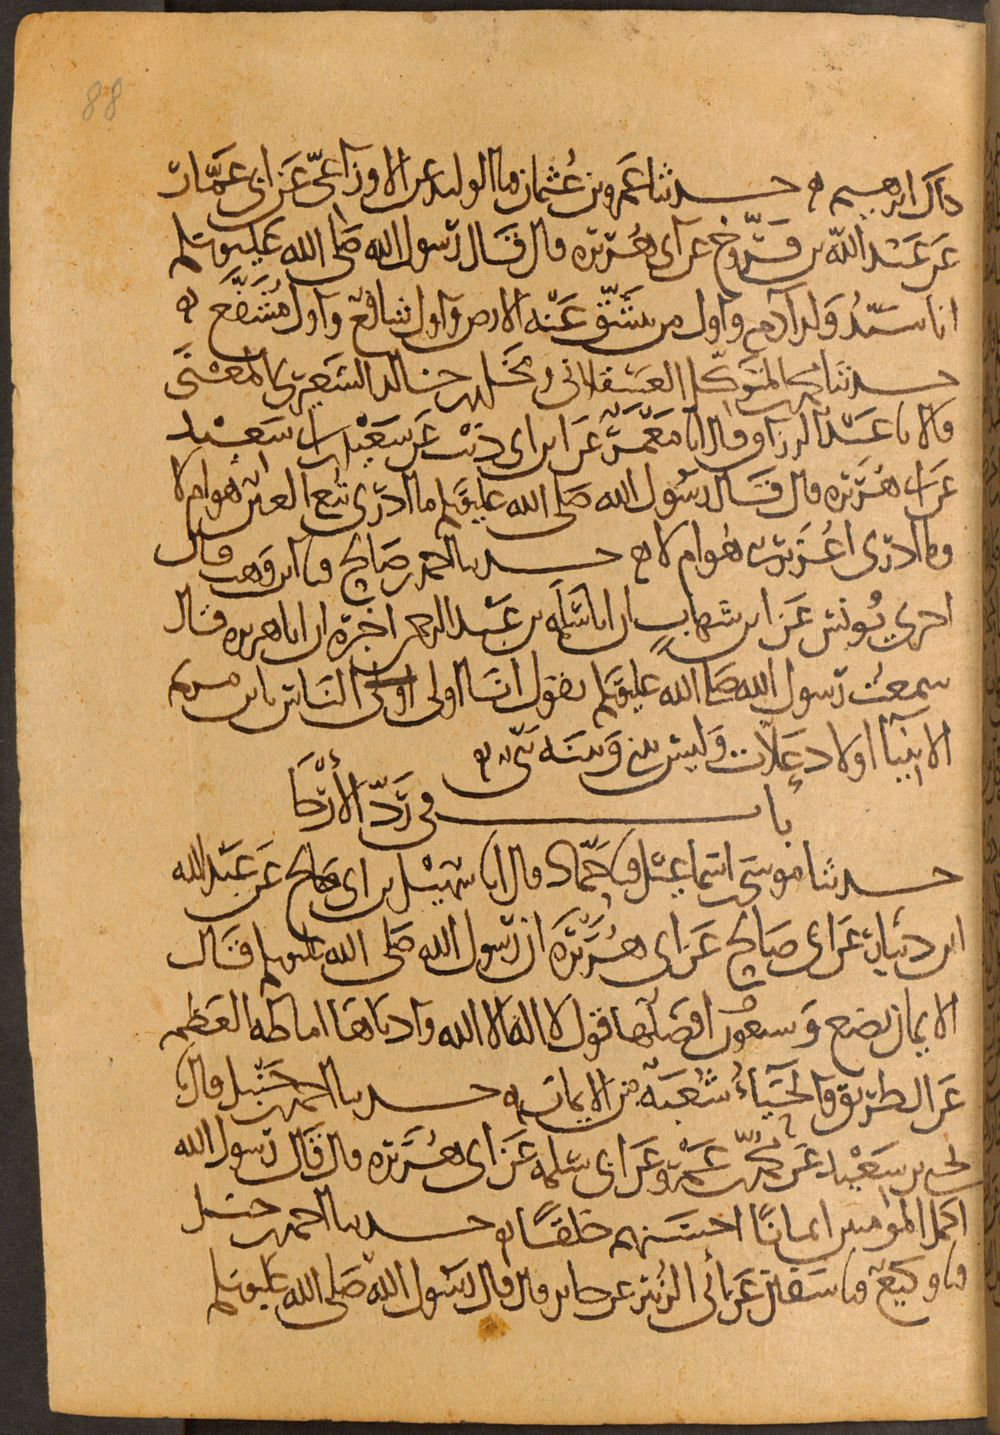 88
ذاك ابرهيم ه حدثنا عمرو بن عثمان نا الوليد عن الاوزاعي عن ابي عمار
عن عبد الله بن فروخ عن ابي هريره قال قال رسول الله صلى الله عليه وسلم
انا سيد ولد آدم واول من تنشق عنه الارض واول شافع واول مشفع ه
حدثنا محمد بن المتوكل العسقلاني ومخلد بن خالد الشعيري المعنى
قالا نا عبد الرزاق قال انا معمر عن ابن ابي ذئب عن سعيد بن ابي سعيد
عن ابي هريره قال قال رسول الله صلى الله عليه وسلم ما ادري تبع العين هو ام لا
وما ادري اعزير هو ام لا ه حدثنا احمد بن صالح نا ابن وهب قال
اخبرني يونس عن ابن شهاب ان ابا سلمه بن عبد الرحمن اخبره ان ابا هريره قال
سمعت رسول الله صلى الله عليه وسلم يقول انا اولى اولى الناس بابن مريم
الانبيا اولاد علات وليس بيني وبينه نبي ه
باب في رد الارجا
حدثنا موسى بن اسماعيل نا حماد قال انا سهيل بن ابي صالح عن عبد الله
ابن دينار عن ابي صالح عن ابي هريرة ان رسول الله صلى الله عليه وسلم قال
الايمان بضع وسبعون افضلها قول لا اله الا الله وادناها اماطه العظم
عن الطريق والحياء شعبة من الايمان ه حدثنا احمد بن حنبل قال نا
يحيى بن سعيد عن محمد بن عمرو عن ابي سلمه عن ابي هريره قال قال رسول الله
اكمل المؤمنين ايمانا احسنهم خلقا ه حدثنا احمد بن حنبل
نا وكيع نا سفيان عن ابي الزبير عن جابر قال قال رسول الله صلى الله عليه وسلم